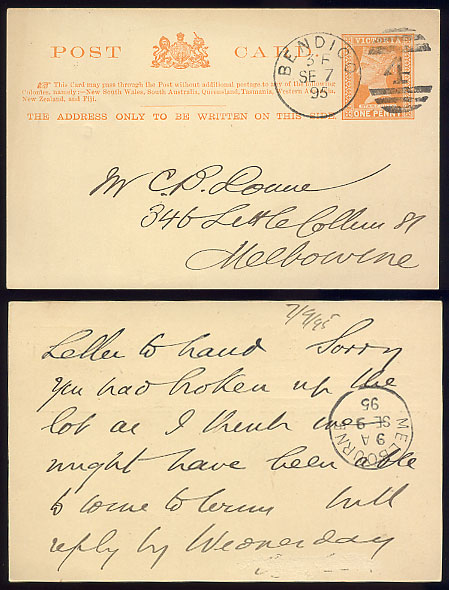 POST CARD
VICTORIA
This Card may pass through the Post without additional postage to any of the following
Colonies, namely:—New South Wales, South Australia, Queensland, Tasmania, Western Australia,
New Zealand, and Fiji.
THE ADDRESS ONLY TO BE WRITTEN ON THIS SIDE
ONE PENNY
BENDIGO
3 F
SE 7
95
Mr C. B. Donne
346 Little Collins St
Melbourne
7/9/95
Letter to hand Sorry
you had broken up the
lot as I think we
might have been able
to come to terms will
reply by Wednesday
MELBOURNE
9 A
SE 9
95